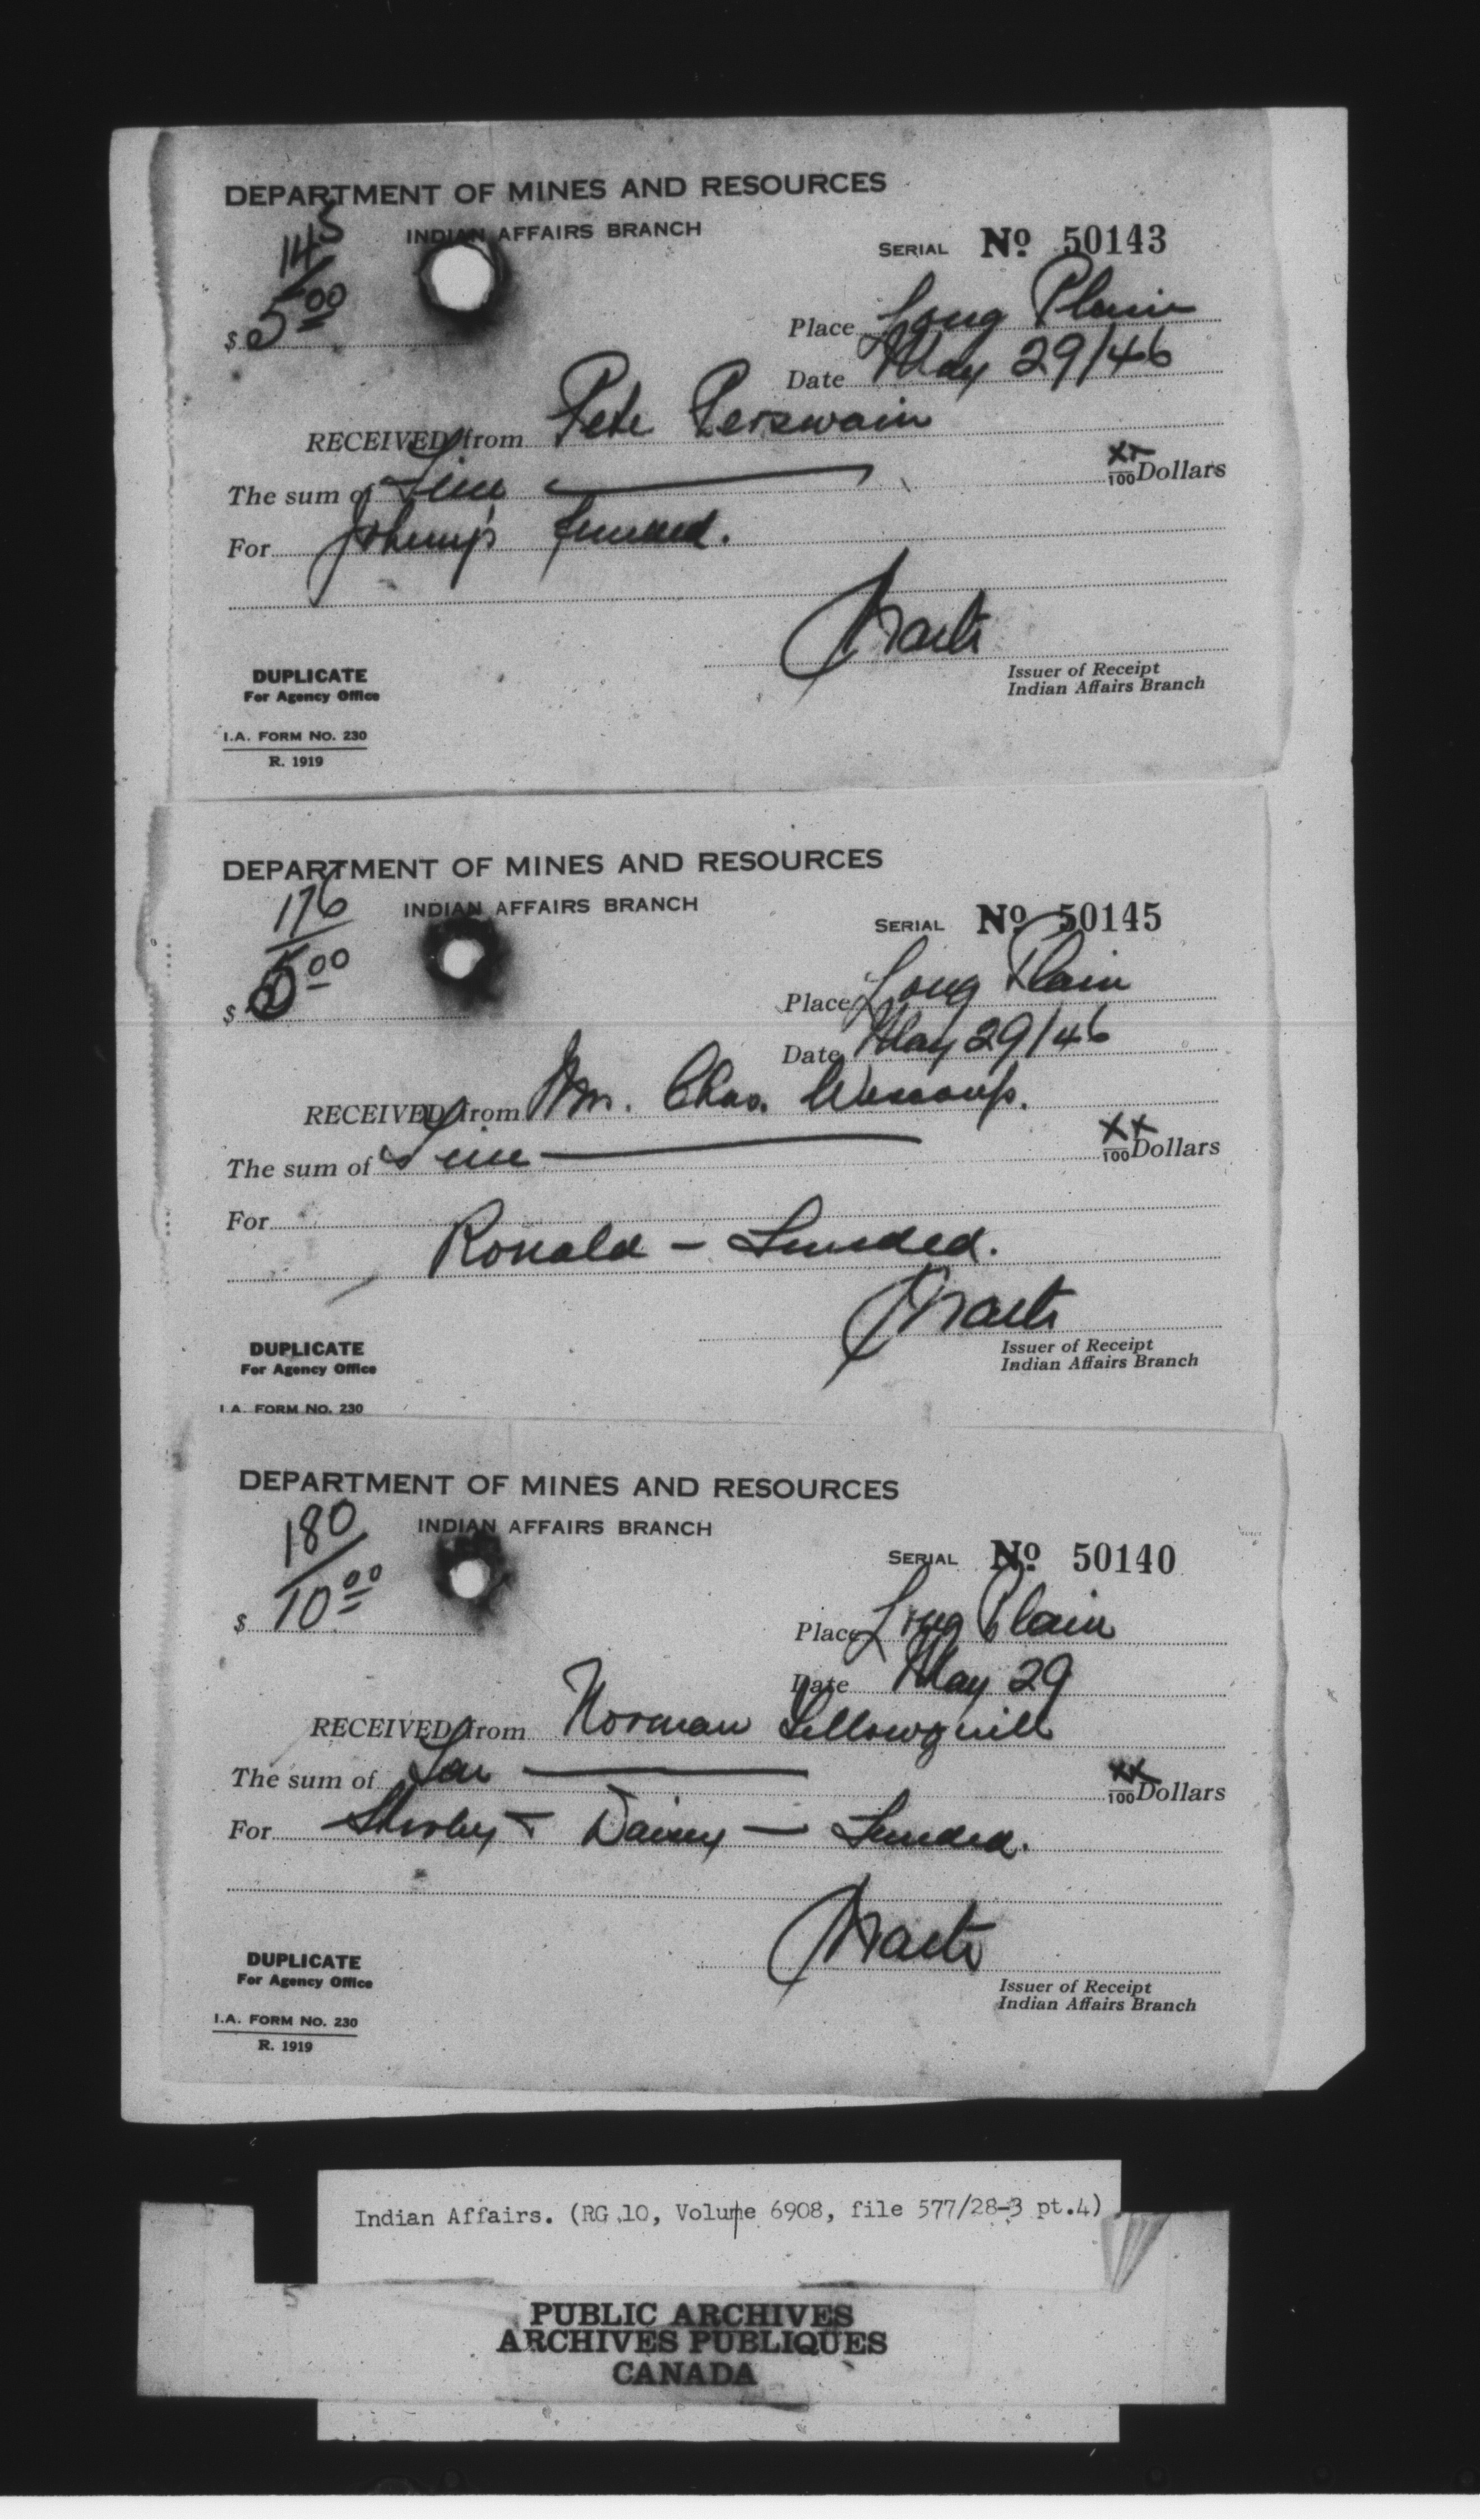 DEPARTMENT OF MINES AND RESOURCES
INDIAN AFFAIRS BRANCH
145
SERIAL No 50143
$ 5 00
Place Long Plain
Date May 29/46
RECEIVED from Pete Perswain
The sum of Five xx/100 Dollars
For Johnny's funded.
Issuer of Receipt
Indian Affairs Branch
DUPLICATE
For Agency Office
I.A. FORM NO. 230
R. 1919
DEPARTMENT OF MINES AND RESOURCES
INDIAN AFFAIRS BRANCH
176
SERIAL No 50145
$ 5 00
Place Long Plain
Date May 29/46
RECEIVED from Mrs. Chas.
The sum of Five xx/100 Dollars
For
Ronald - Funded.
Issuer of Receipt
Indian Affairs Branch
DUPLICATE
For Agency Office
I.A. FORM NO. 230
DEPARTMENT OF MINES AND RESOURCES
INDIAN AFFAIRS BRANCH
180
SERIAL No 50140
$ 10 00
Place Long Plain
Date May 29
RECEIVED from Norman Yellowquill
The sum of Ten xx/100 Dollars
For Shirley + Daisy - Funded.
Issuer of Receipt
Indian Affairs Branch
DUPLICATE
For Agency Office
I.A. FORM NO. 230
R. 1919
Indian Affairs. (RG 10, Volume 6908, file 577/28-3 pt.4)
PUBLIC ARCHIVES
ARCHIVES PUBLIQUES
CANADA